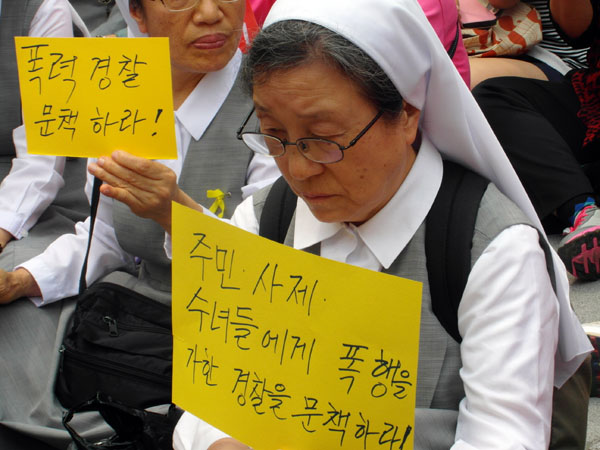 폭력 경찰
문책 하라!
주민·사제·
수녀들에게 폭행을
가한 경찰을 문책하라!